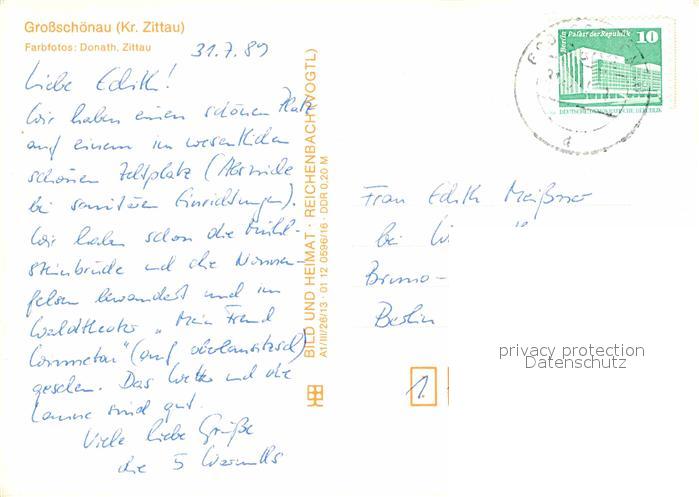 Großschönau (Kr. Zittau)
Farbfotos: Donath, Zittau
31.7.89
Liebe Edith!
Wir haben einen schönen Platz
auf einem im wesentlichen
schönen Zeltplatz (Abstriche
bei sanitären Einrichtungen).
Wir haben schon die Mühl-
steinbrüche und die Nonnen-
felsen bewandert und im
Waldtheater "Mein Freund
Bunbury" (auf oberlausitzisch)
gesehen. Das Wetter und die
Laune sind gut.
Viele liebe Grüße
die 5
BILD UND HEIMAT · REICHENBACH (VOGTL)
A1/III/26/13 · 01 12 0596/16 · DDR 0,20 M
Berlin Palast der Republik
10
DEUTSCHE DEMOKRATISCHE REPUBLIK
Frau Edith Meißner
bei W.
Bruno-
Berlin
1
privacy protection
Datenschutz